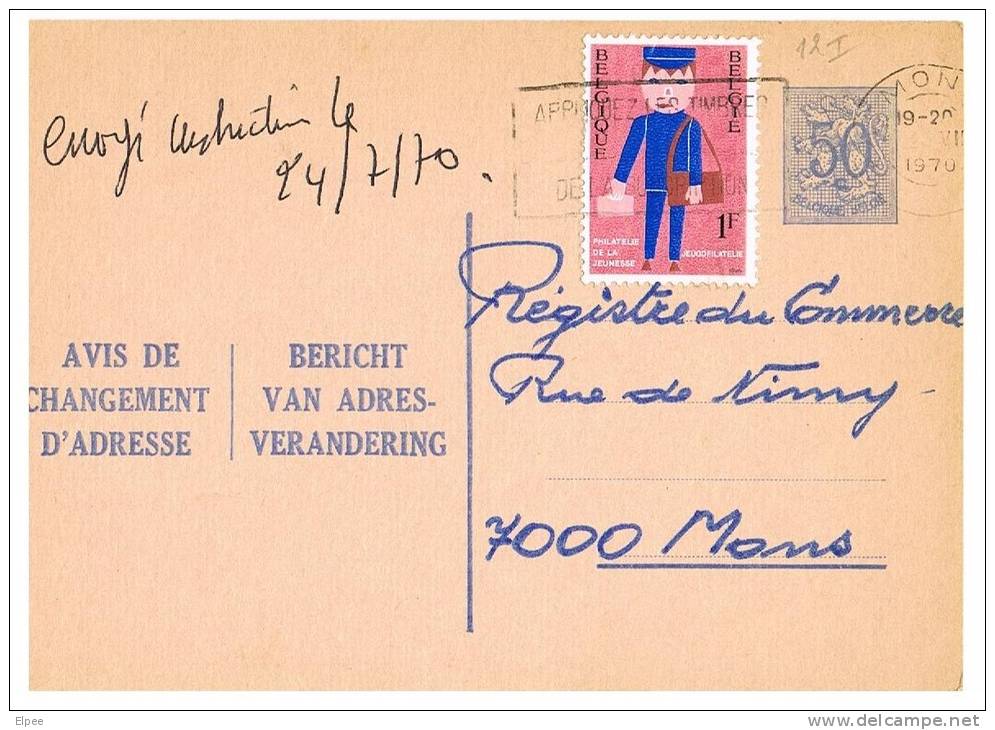 12 I
BELGIQUE
BELGIË
APPLIQUEZ LES TIMBRES
DE LA
1F
PHILATELIE
DE LA
JEUNESSE
JEUGDFILATELIE
50
BELGIQUE-BELGIE
MON
19-20
VII
1970
le
24/7/70.
AVIS DE
CHANGEMENT
D'ADRESSE
BERICHT
VAN ADRES-
VERANDERING
Régistre du Commerce
Rue de Nimy -
7000 Mons
Elpee
delcampe.net